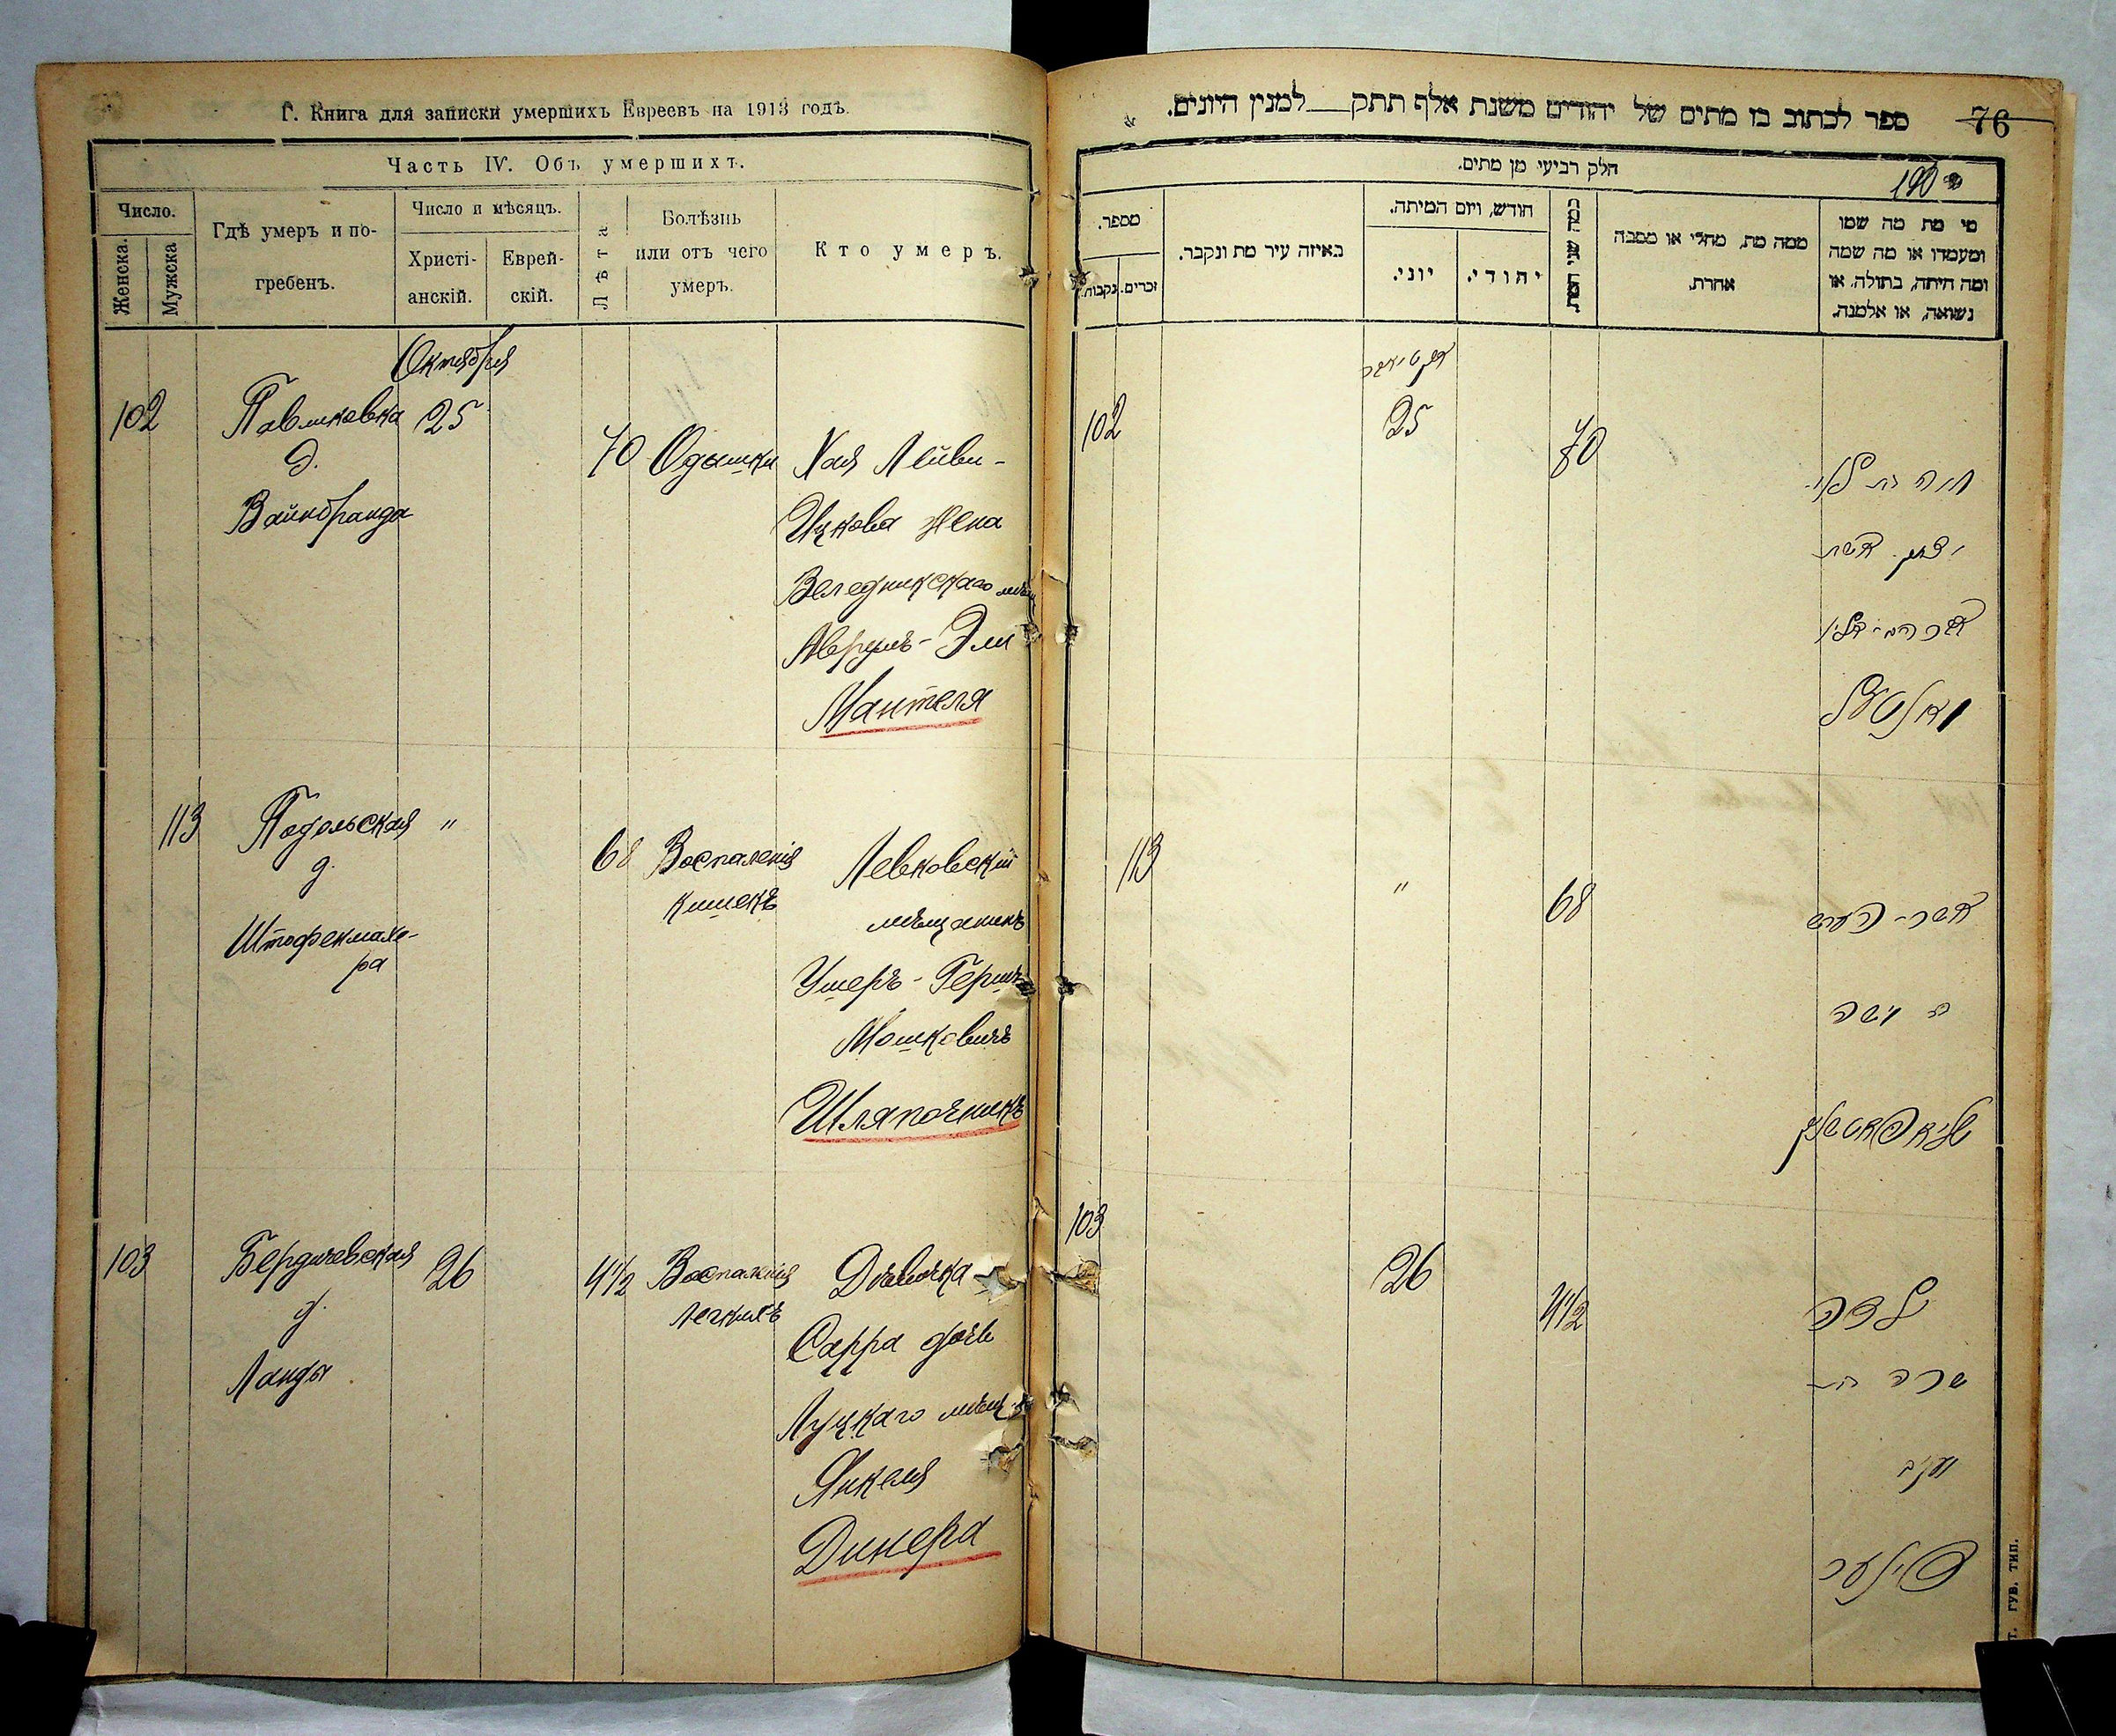 Г. Книга для записки умершихъ Евреевъ на 1913 годъ.
Часть IV. Объ умершихъ.
Число.
Женска.
Мужска
Гдѣ умеръ и по-
гребенъ.
Число и мѣсяцъ.
Христі-
анскій.
Еврей-
скій.
Лѣта
Болѣзнь
или отъ чего
умеръ.
Кто умеръ.
Октября
102 Павликовка 25
д.
Вайнбранда
70 Одышки Хая Лейви-
Ицкова жена
Веледникскаго мѣщ
Аврумъ-Эли
Мантеля
113 Подольская "
д.
Штофенмахе-
ра
68 Воспаленія Левковскій
кишекъ мѣщанинъ
Ушеръ-Герш
Мошковичъ
Шляпочникъ
103 Бердичевская 26
д.
Ланды
4 1/2 Воспаленія Дѣвочка
легкихъ Сарра дочь
Луцкаго мѣщ
Янкеля
Динера
ספר לכתוב בו מתים של יהודים משנת אלף תתק למנין היונים.
76
חלק רביעי מן מתים.
190
מספר.
נקבות.
זכרים.
באיזה עיר מת ונקבר.
חודש, ויום המיתה.
יוני.
יהודי.
כמה שני המת.
ממה מת, מחלי או מסבה
אחרת.
מי מת מה שמו
ומעמדו או מה שמה
ומה היתה, בתולה, או
נשואה, או אלמנה.
102 25 70
חיה בת
אשת
113 " 68
משה
103 26 4 1/2
ילדה
שרה בת
יעקב
ГУВ. ТИП.